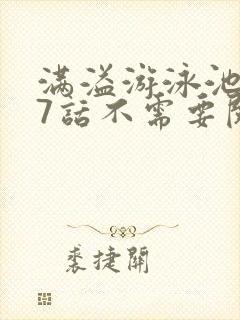 满溢游泳池
7話不需要
裘捷開